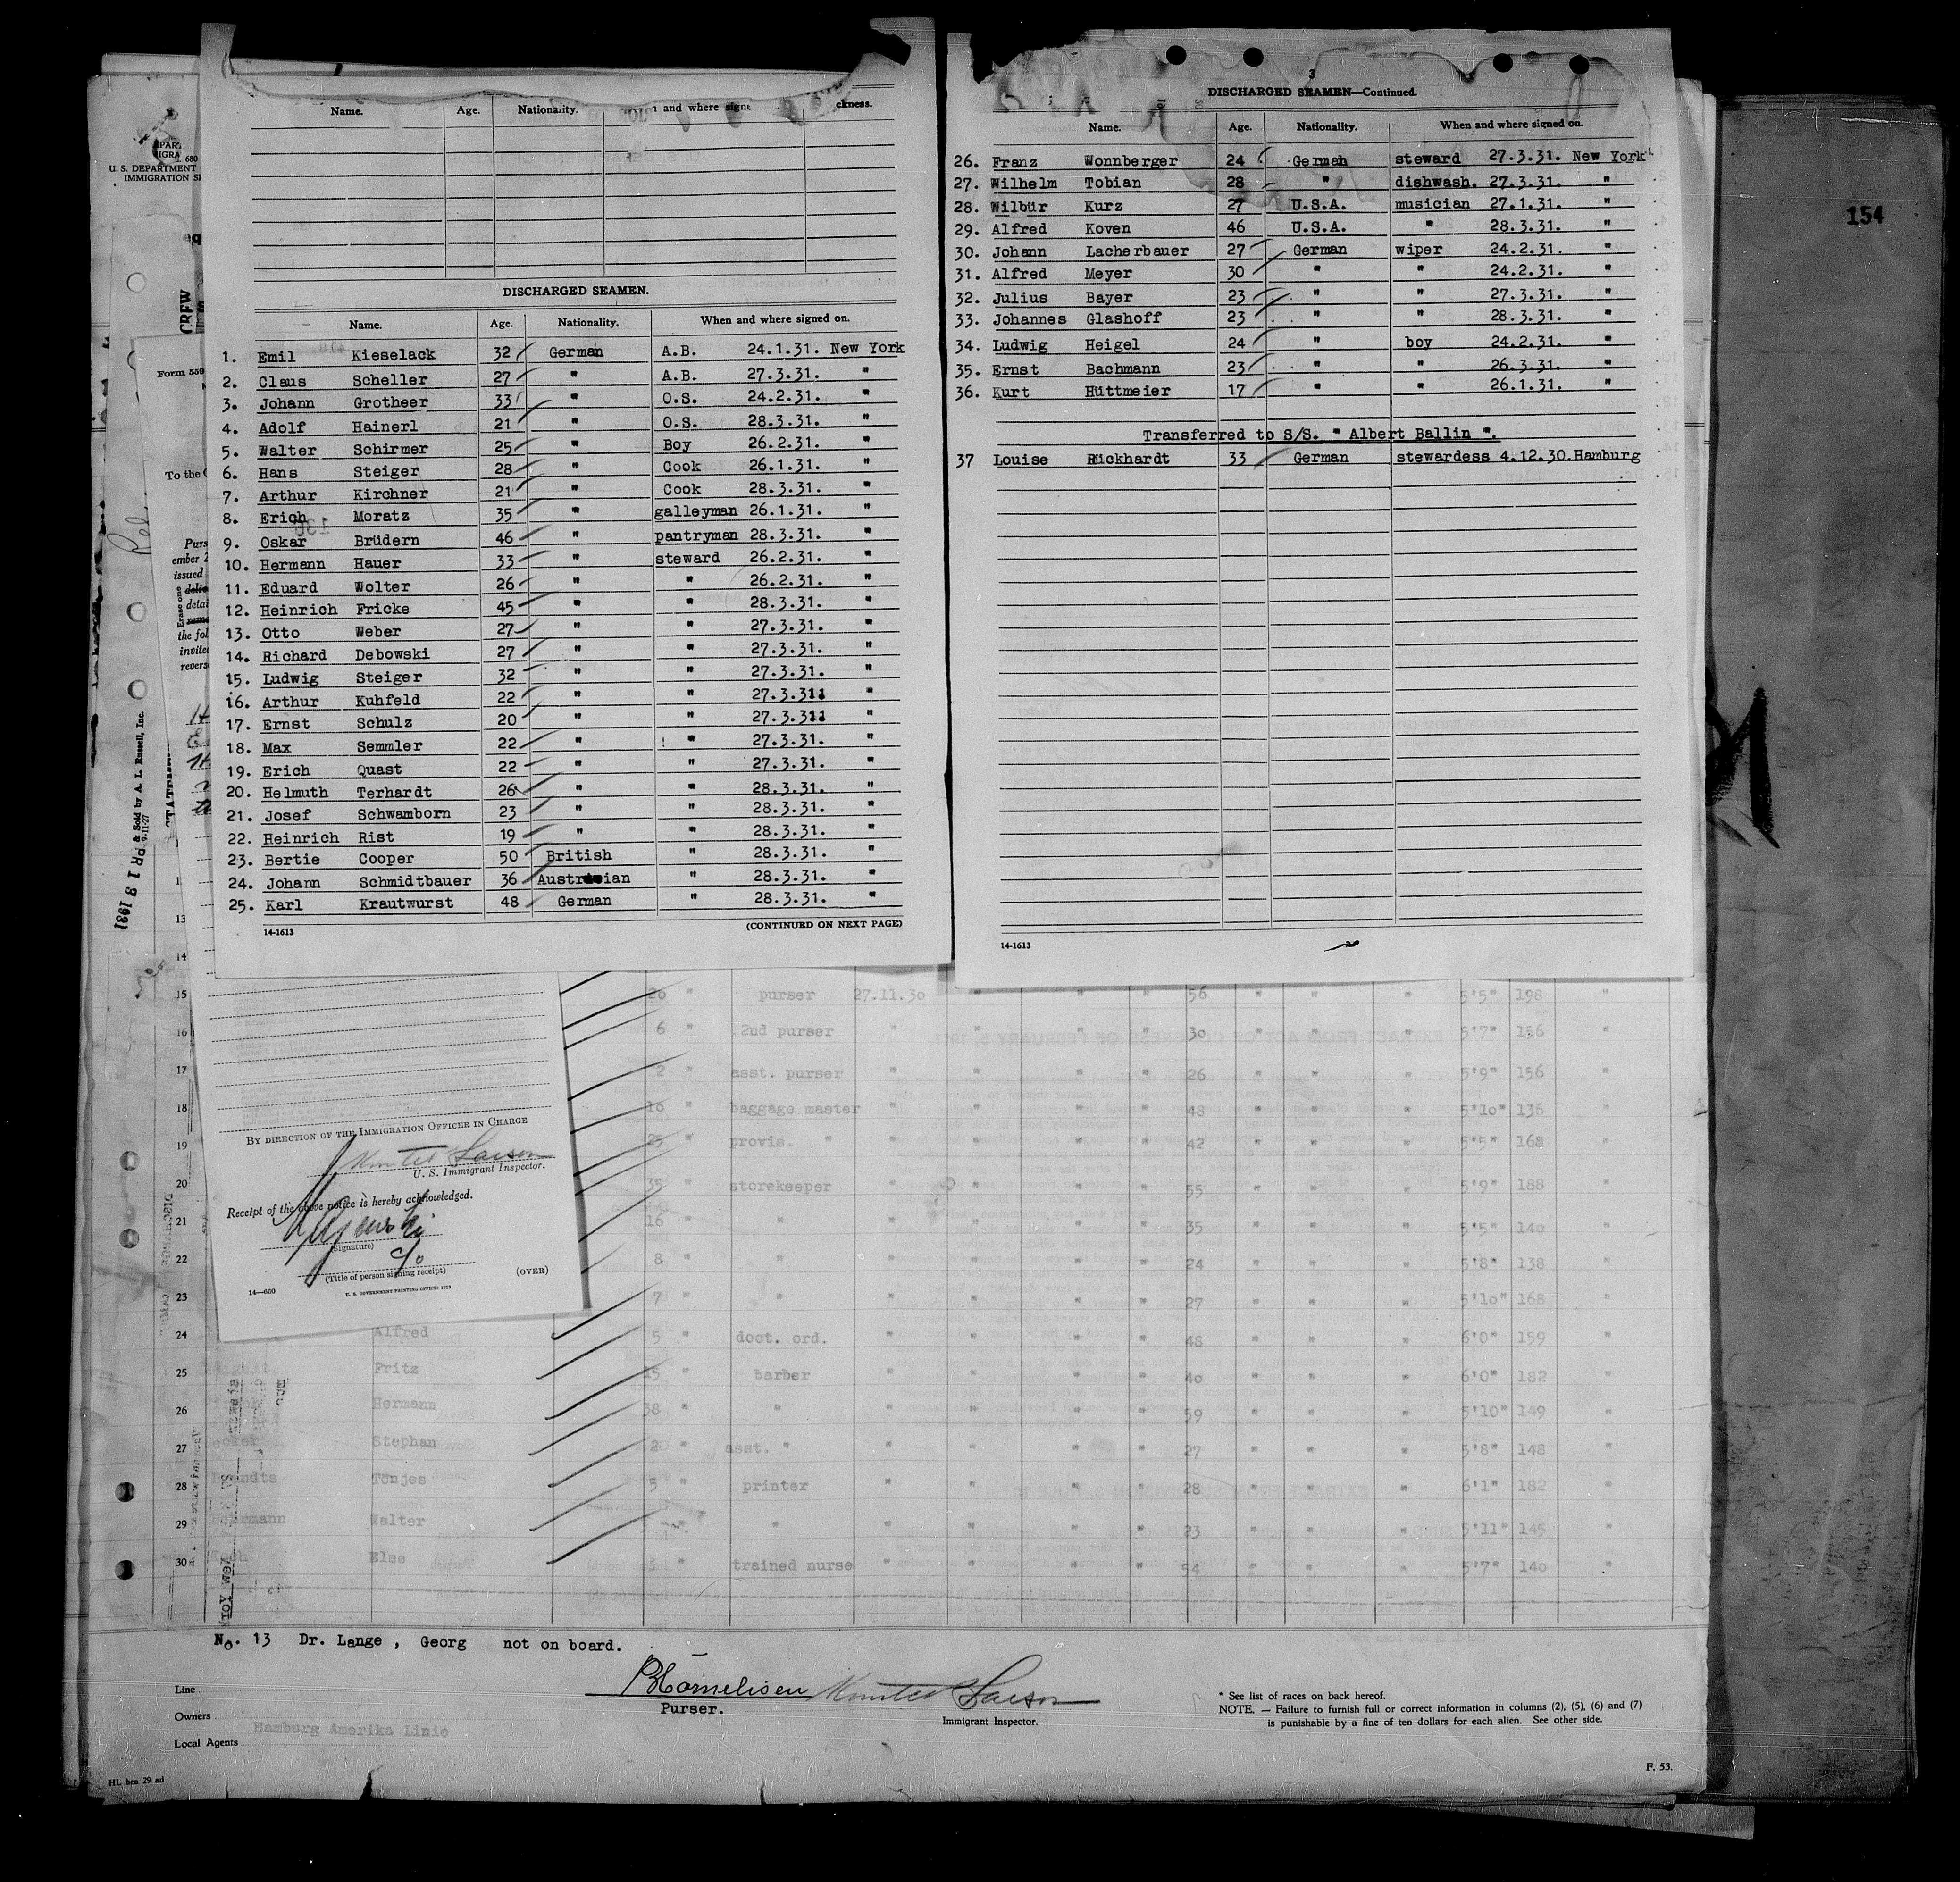 Name. Age. Nationality. and where signe ckness.
DISCHARGED SEAMEN.
Name. Age. Nationality. When and where signed on.
1. Emil Kieselack 32 German A.B. 24.1.31. New York
2. Claus Scheller 27 " A.B. 27.3.31. "
3. Johann Grotheer 33 " O.S. 24.2.31. "
4. Adolf Hainerl 21 " O.S. 28.3.31. "
5. Walter Schirmer 25 " Boy 26.2.31. "
6. Hans Steiger 28 " Cook 26.1.31. "
7. Arthur Kirchner 21 " Cook 28.3.31. "
8. Erich Moratz 35 " galleyman 26.1.31. "
9. Oskar Brüdern 46 " pantryman 28.3.31. "
10. Hermann Hauer 33 " steward 26.2.31. "
11. Eduard Wolter 26 " " 26.2.31. "
12. Heinrich Fricke 45 " " 28.3.31. "
13. Otto Weber 27 " " 27.3.31. "
14. Richard Debowski 27 " " 27.3.31. "
15. Ludwig Steiger 32 " " 27.3.31. "
16. Arthur Kuhfeld 22 " " 27.3.311 "
17. Ernst Schulz 20 " " 27.3.311 "
18. Max Semmler 22 " " 27.3.31. "
19. Erich Quast 22 " " 27.3.31. "
20. Helmuth Terhardt 26 " " 28.3.31. "
21. Josef Schwamborn 23 " " 28.3.31. "
22. Heinrich Rist 19 " " 28.3.31. "
23. Bertie Cooper 50 British " 28.3.31. "
24. Johann Schmidtbauer 36 Austrian " 28.3.31. "
25. Karl Krautwurst 48 German " 28.3.31. "
14-1613 (CONTINUED ON NEXT PAGE)
3
DISCHARGED SEAMEN—Continued.
Name. Age. Nationality. When and where signed on.
26. Franz Wonnberger 24 German steward 27.3.31. New York
27. Wilhelm Tobian 28 " dishwash. 27.3.31. "
28. Wilbür Kurz 27 U.S.A. musician 27.1.31. "
29. Alfred Koven 46 U.S.A. " 28.3.31. "
30. Johann Lacherbauer 27 German wiper 24.2.31. "
31. Alfred Meyer 30 " " 24.2.31. "
32. Julius Bayer 23 " " 27.3.31. "
33. Johannes Glashoff 23 " " 28.3.31. "
34. Ludwig Heigel 24 " boy 24.2.31. "
35. Ernst Bachmann 23 " " 26.3.31. "
36. Kurt Hüttmeier 17 " " 26.1.31. "
Transferred to S/S. " Albert Ballin ".
37 Louise Rückhardt 33 German stewardess 4.12.30.Hamburg
14-1613
154
680
U. S. DEPARTMENT
IMMIGRATION SE
CREW
Form 559
To the
Purs
ember 2
issued
Erase one
detai
the fol
invited
revers
& Sold by A. L. Russell, Inc.
PR 13 1931
13
14
15 26 " purser 27.11.30 " " " 56 " " " 5'5" 198 "
16 6 " 2nd purser " " " " 30 " " " 5'7" 156 "
17 2 " asst. purser " " " " 26 " " " 5'9" 156 "
18 16 " baggage master " " " " 48 " " " 5'10" 136 "
19 25 " provis. " " " " " 42 " " " 5'5" 168 "
20 35 " storekeeper " " " " 55 " " " 5'9" 188 "
21 16 " " " " " " 35 " " " 5'5" 140 "
22 8 " " " " " " 24 " " " 5'8" 138 "
23 7 " " " " " " 27 " " " 5'10" 168 "
24 Alfred 5 " doct. ord. " " " " 48 " " " 6'0" 159 "
25 Fritz 15 " barber " " " " 40 " " " 6'0" 182 "
26 Hermann 38 " " " " " " 59 " " " 5'10" 149 "
27 Stephan 20 " asst. " " " " " 27 " " " 5'8" 148 "
28 Tönjes 5 " printer " " " " 28 " " " 6'1" 182 "
29 Walter " " " " " " 23 " " " 5'11" 145 "
30 Else " trained nurse " " " " 54 " " " 5'7" 140 "
BY DIRECTION OF THE IMMIGRATION OFFICER IN CHARGE
Larson
U. S. Immigrant Inspector.
Receipt of the above notice is hereby acknowledged.
(Signature)
c/o
(Title of person signing receipt) (OVER)
14—600 U. S. GOVERNMENT PRINTING OFFICE
No. 13 Dr. Lange , Georg not on board.
Larson
Purser. Immigrant Inspector.
Line
Owners
Hamburg Amerika Linie
Local Agents
* See list of races on back hereof.
NOTE. — Failure to furnish full or correct information in columns (2), (5), (6) and (7)
is punishable by a fine of ten dollars for each alien. See other side.
HL brn 29 ad F. 53.